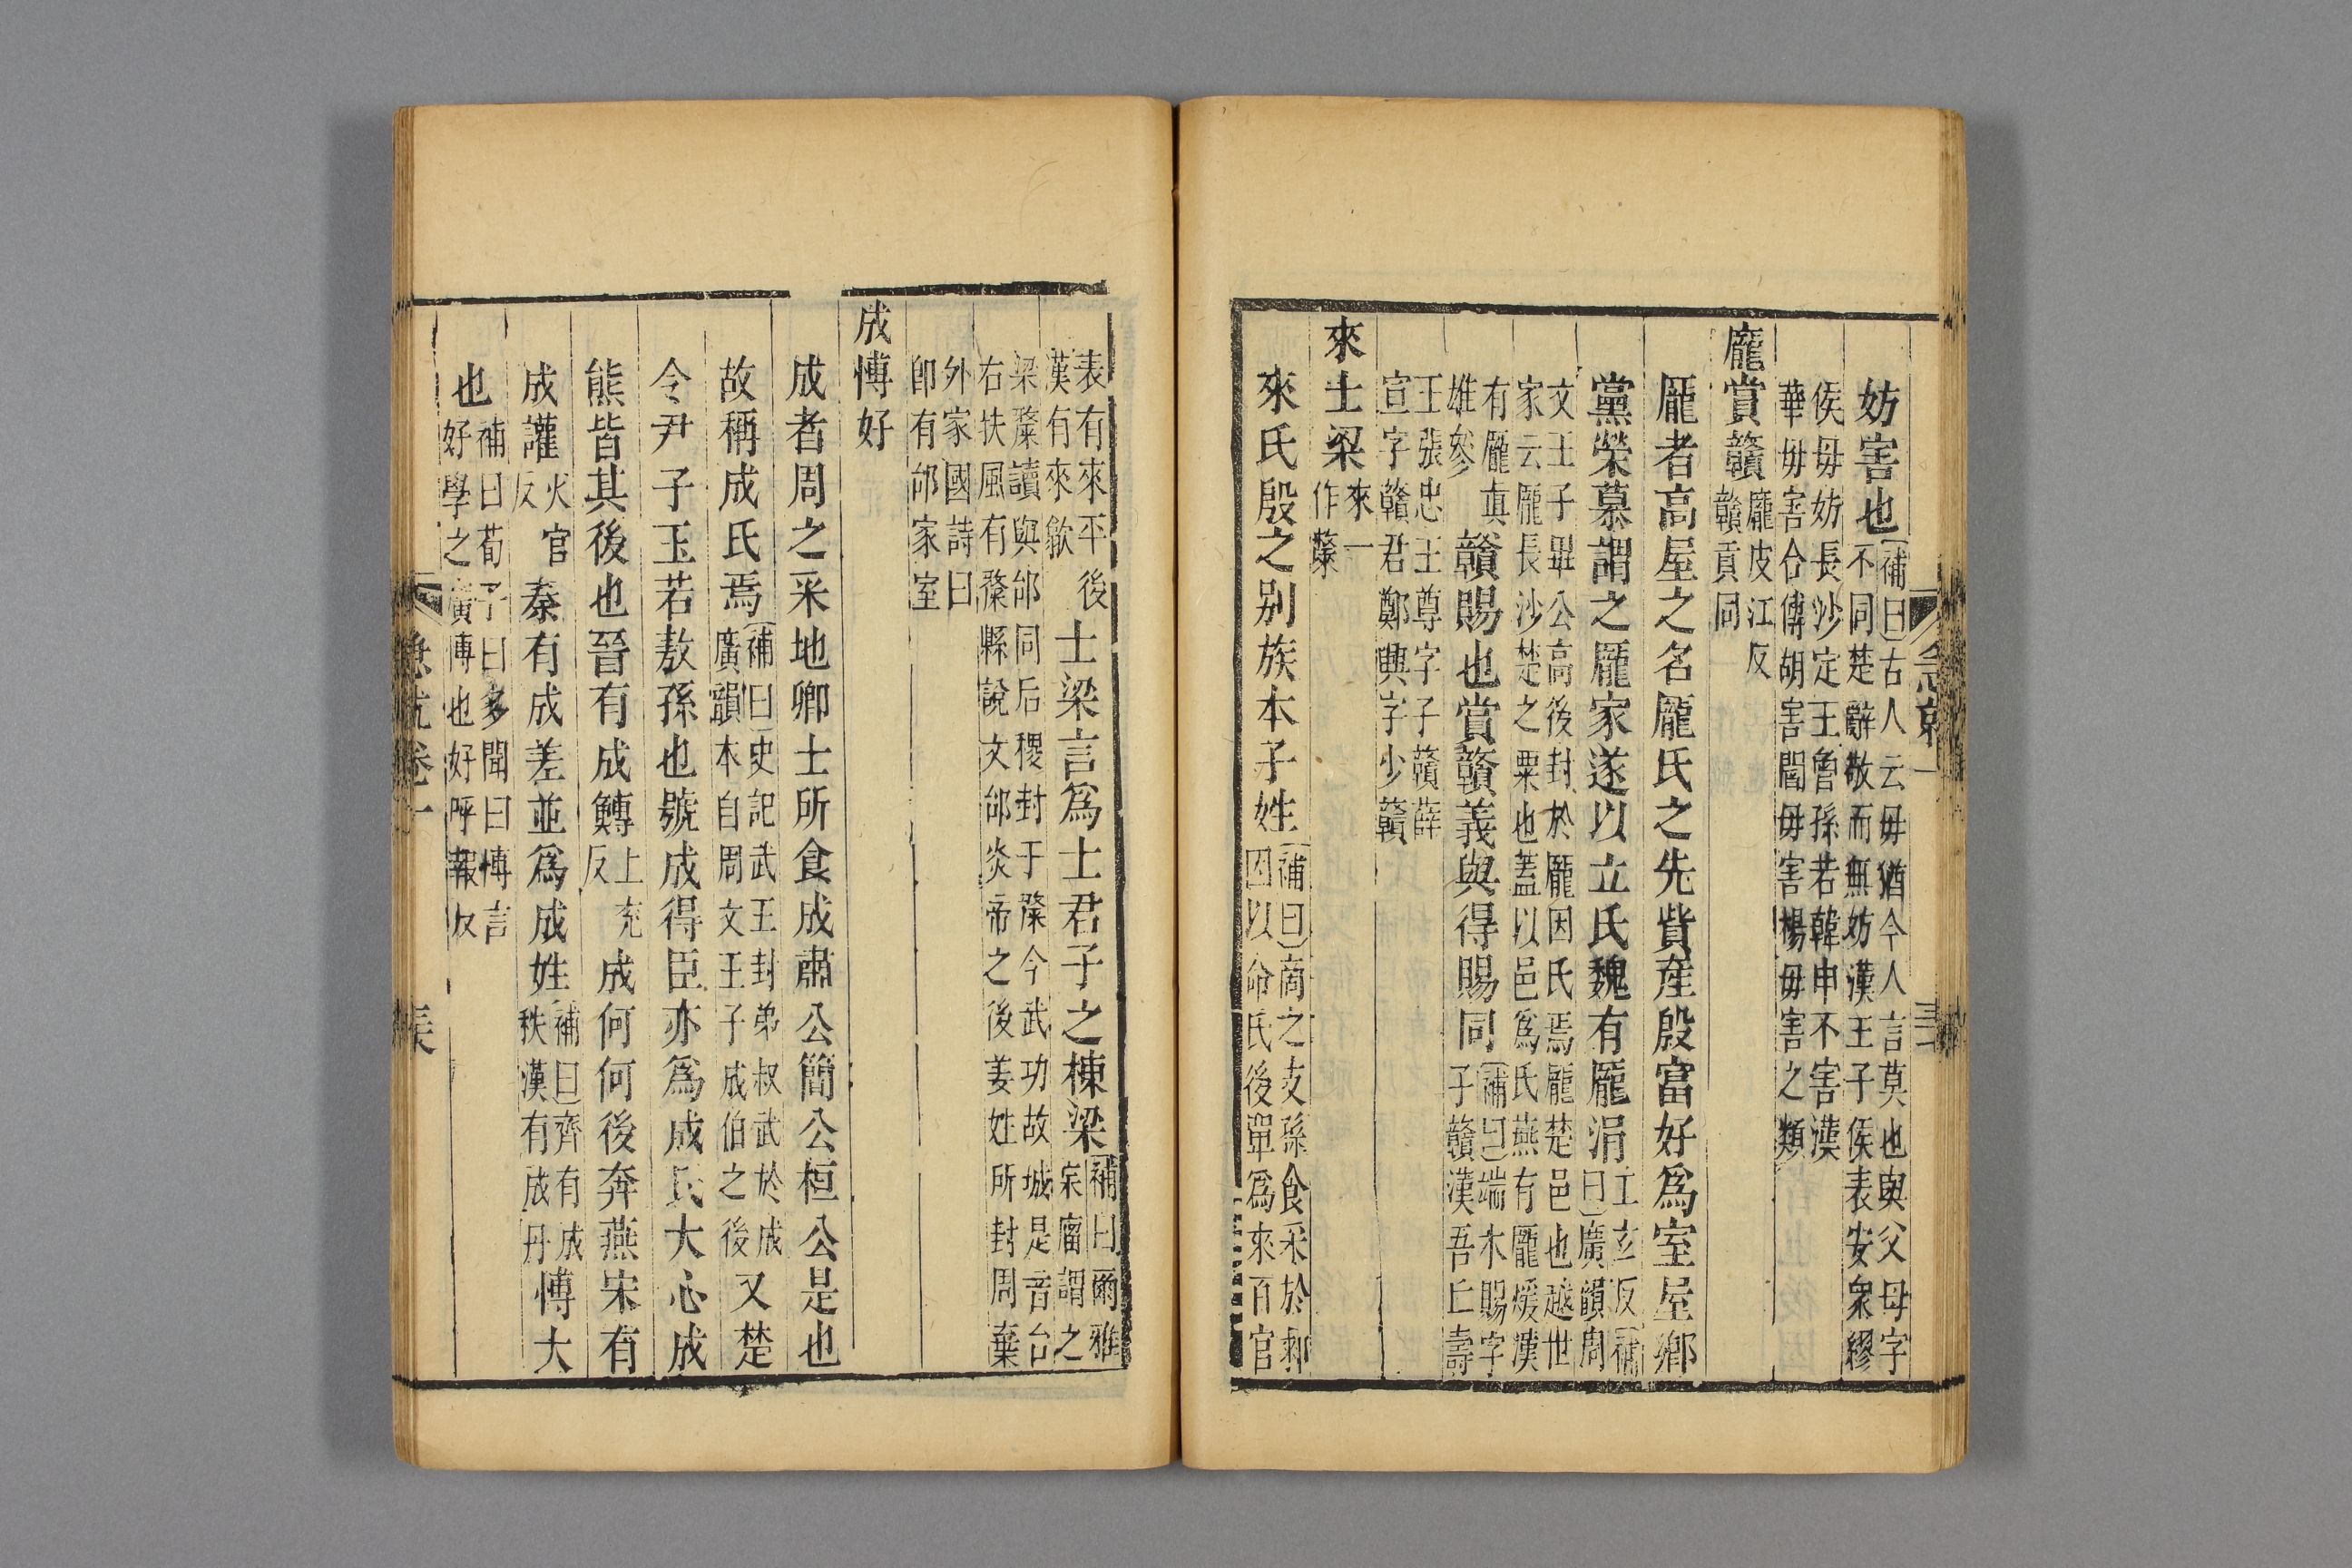 妨害也補曰古人云毋猶今人言莫也與父母字
不同楚辭敬而無妨漢王子侯表安衆繆
侯毋妨長沙定王曾孫若韓申不害漢
華毋害合傅胡害閻毋害楊毋害之類
龐賞贛龐皮江反
贛貢同
龐者高屋之名龐氏之先貲産殷富好爲室屋鄉
黨榮慕謂之龐家遂以立氏魏有龐涓工玄反補
曰廣韻周
文王子畢公高後封於龐因氏焉龐楚邑也越世
家云龐長沙楚之粟也蓋以邑爲氏燕有龐煖漢
有龐真
雄參
贛賜也賞贛義與得賜同補曰端木賜字
子贛漢吾丘壽
王張忠王尊字子贛薛
宣字贛君鄭興字少贛
來士梁來一
作棃
來氏殷之别族本子姓補曰商之支孫食采於郲
因以命氏後單爲來百官
表有來平後
漢有來歙
士梁言爲士君子之棟梁補曰爾雅
宲廇謂之
梁斄讀與邰同后稷封于斄今武功故城是音台
右扶風有斄縣說文邰炎帝之後姜姓所封周棄
外家國詩曰
卽有邰家室
成愽好
成者周之采地卿士所食成肅公簡公桓公是也
故稱成氏焉補曰史記武王封弟叔武於成
廣韻本自周文王子成伯之後
又楚
令尹子玉若敖孫也號成得臣亦爲成氏大心成
熊皆其後也晉有成鱄上兖
反
成何何後奔燕宋有
成讙火官
反
秦有成差並爲成姓補曰齊有成
秩漢有成丹
愽大
也補曰荀子曰多聞曰愽言
好學之廣愽也好呼報反
急就一
急就卷一